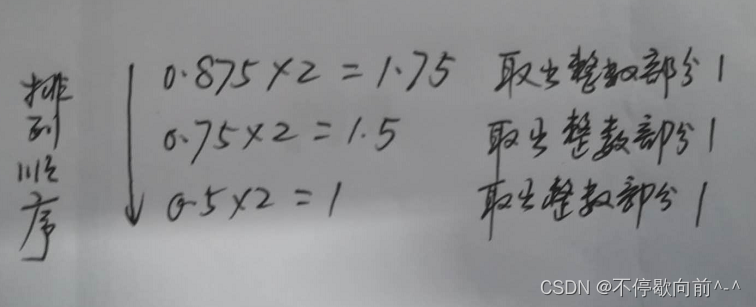 排列顺序
0.875×2=1.75 取出整数部分1
0.75×2=1.5 取出整数部分1
0.5×2=1 取出整数部分1
CSDN @不停歇向前^-^